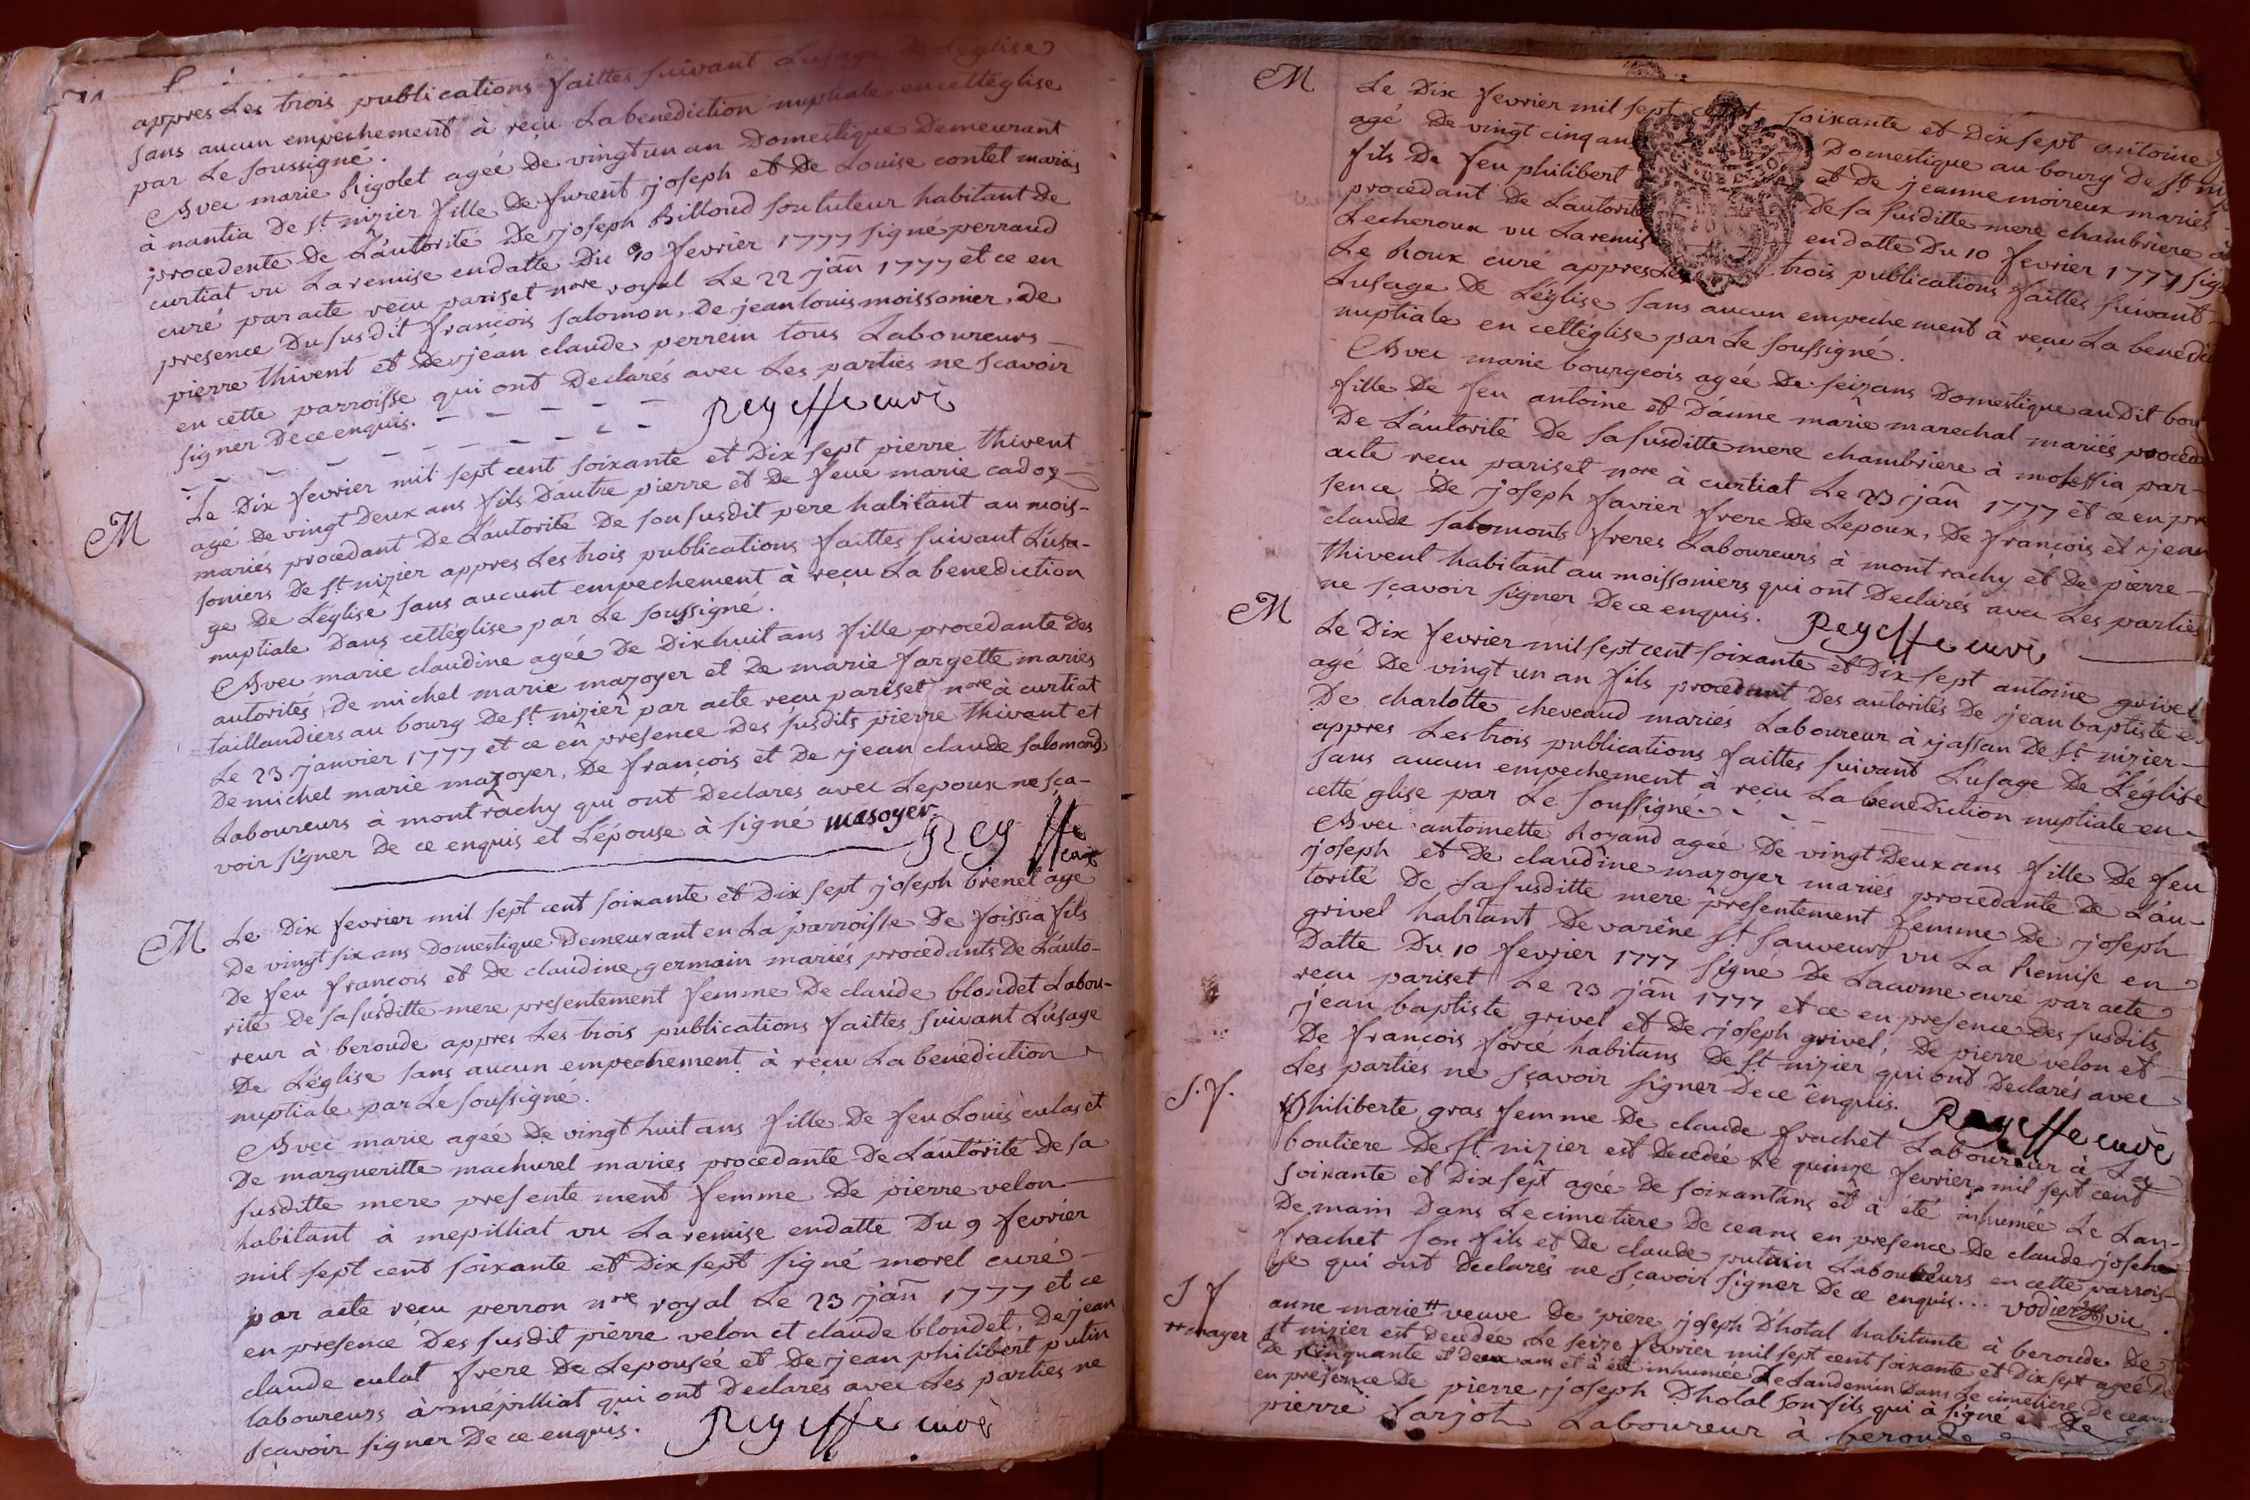 appres Les trois publications faittes suivant Lusage de Leglise
sans aucun empechement à reçu La benediction nuptiale en cetteglise
par Le soussigné.
Avec marie Rigolet agée De vingt un an Domestique Demeurant
à nantia De st. nizier fille De furent joseph et De Louise contet mariés
procedente de L'autorité De joseph Billoud son tuteur habitant De
curtiat vu La remise en datte Du 10 fevrier 1777 signé perraud
curé par acte reçu pariset nore royal Le 22 jañ 1777 et ce en
presence Du susdit françois salomon, De jean louis moissonier, De
pierre thivent et De jean claude perrein tous Laboureurs
en cette parroisse qui ont Declarés avec Les parties ne scavoir
signer De ce enquis.
Reyffe curé
M
Le Dix fevrier mil sept cent soixante et Dix sept pierre thivent
agé de vingt Deux ans fils D'autre pierre et De feue marie cadoz
mariés procedant De L'autorité De son susdit pere habitant au mois-
soniers De st. nizier appres Les trois publications faittes suivant L'usa-
ge De L'église sans aucunt empechement à reçu La benediction
nuptiale Dans cetteglise par Le soussigné.
Avec marie claudine agée De Dix huit ans fille procedante Des
autorités De michel marie mazoyer et De marie fargette mariés
taillandiers au bourg De st. nizier par acte reçu pariset nore à curtiat
Le 23 janvier 1777 et ce en presence Des susdits pierre thivant et
De michel marie mazoyer, De françois et De jean claude salomond
Laboureurs à mont rachy qui ont Declarés avec Lepoux ne sça-
voir signer De ce enquis et L'épouse à signé masoyer
Reyffe curé
M
Le Dix fevrier mil sept cent soixante et Dix sept joseph brenet agé
De vingt six ans Domestique Demeurant en La parroisse De foissia fils
De feu francois et De claudine germain mariés procedants De L'auto-
rité De sa susditte mere presentement femme De claude blondet Labou-
reur à beroude appres Les trois publications faittes suivant L'usage
De L'église sans aucun empechement à reçu La bénédiction
nuptiale par Le soussigné.
Avec marie agée De vingt huit ans fille De feu Louis culas et
De margueritte machurel mariés procedante De L'autorité De sa
susditte mere presente ment femme De pierre velon
habitant à mepilliat vu La remise en datte Du 9 fevrier
mil sept cent soixante et Dix sept signé morel curé
par acte reçu perron nore royal Le 23 jañ 1777 et ce
en presence Des susdit pierre velon et claude blondet, De jean
claude culat frere De Lepousée et De jean philibert putin
laboureurs à mépilliat qui ont Declarés avec Les parties ne
sçavoir signer De ce enquis.
Reyffe curé
M
Le Dix fevrier mil sept cent soixante et Dix sept antoine
agé De vingt cinq ans Domestique au bourg De st.
fils De feu philibert et de jeanne moireux mariés
procedant De L'autorité De sa susditte mere chambriere à
Lecheroux vu La remise en datte Du 10 fevrier 1777 sig
Le Roux curé appres Les trois publications faittes suivant
Lusage De L'église sans aucun empechement à reçu La benedic
nuptiale en cetteglise par Le soussigné.
Avec marie bourgeois agée De seizans Domestique au Dit bou
fille De feu antoine et D'anne marie marechal mariés proced
De L'autorité De sa susditte mere chambriere à molissia par
acte reçu pariset nore à curtiat Le 23 jañ 1777 et ce en pre
sence De joseph favier frere De Lepoux, De françois et jean
claude salomonts freres Laboureurs à mont rachy et De pierre
thivent habitant au moissoniers qui ont Declarés avec Les parties
ne sçavoir signer De ce enquis.
Reyffe curé
M
Le Dix fevrier mil sept cent soixante et Dix sept antoine grivel
agé De vingt un an fils procedant Des autorités De jean baptiste et
De charlotte cheveaud mariés Laboureur à jassan De st. nizier
appres Les trois publications faittes suivant L'usage De L'église
sans aucun empechement à reçu La benediction nuptiale en
cetté glise par Le soussigné.
Avec antoinette Royaud agée De vingt Deux ans fille De feu
joseph et De claudine mazoyer mariés procedante De L'au-
torité De sa susditte mere presentement femme De joseph
grivel habitant De varéne st. sauveur vu La Remise en
Datte Du 10 fevrier 1777 signé De Lacurne curé par acte
reçu pariset Le 23 jañ 1777 et ce en presence Des susdits
jean baptiste grivel et De joseph grivel, De pierre velon et
De francois forcé habitans De st. nizier qui ont Declarés avec
Les parties ne sçavoir signer De ce enquis.
Reyffe curé
S. f.
Philiberte gras femme De claude frachet Laboureur à La
boutiere De st. nizier est Decédée Le quinze fevrier mil sept cent
soixante et Dix sept agée de soixantans et à été inhumée Le Lan-
Demain Dans Le cimetiere De ceans en presence De claude joseph
frachet son fils et De claude putain Laboureurs en cette parrois-
se qui ont declarés ne sçavoir signer De ce enquis... vodier vic.
S f
mayer
anne marie veuve De pierre joseph D'hotal habitante à beroude De
st nizier est Decedée Le seize fevrier mil sept cent soixante et Dix sept agée De
De cinquante et deux ans et à été inhumée Le landemin Dans Le cimetiere De ceans
en présence De pierre joseph D'hotal son fils qui à signé et De
pierre farjot Laboureur à beroude